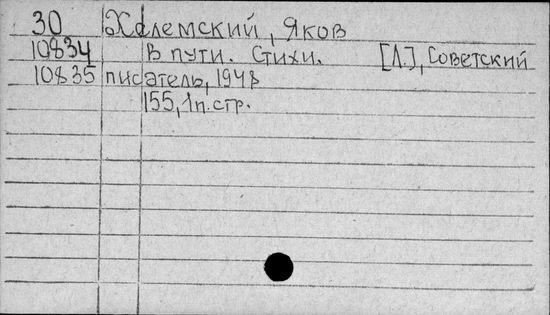 30 Хелемский, Яков
10834 В пути. Стихи. [Л.], Советский
10835 писатель, 1948
155, 1п.стр.